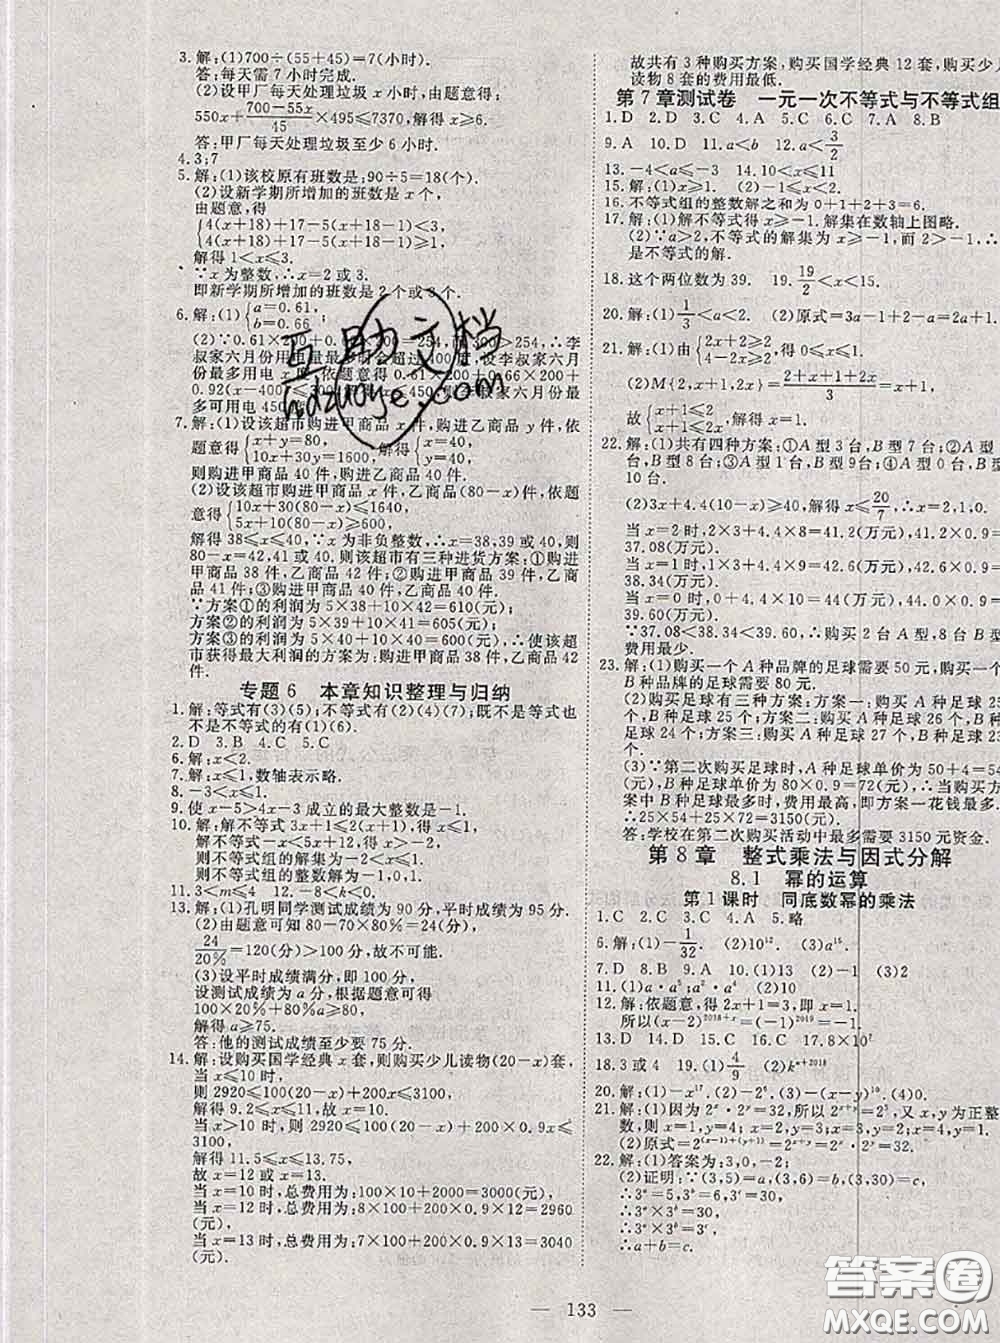 3.解:(1)700÷(55+45)=7(小时).
答:每天需 7 小时完成.
(2)设甲厂每天处理垃圾 x 小时,由题意得:
550x+(700-55x)/45×495≤7370,解得 x≥6.
答:甲厂每天处理垃圾至少 6 小时.
4.3;7
5.解:(1)该校原有班数是:90÷5=18(个).
(2)设新学期所增加的班数是 x 个.
由题意,得
{4(x+18)+17-5(x+18-1)<3,
4(x+18)+17-5(x+18-1)≥1,
解得 1<x≤3.
∵x 为整数,∴x=2 或 3.
即新学期所增加的班数是 2 个或 3 个.
6.解:(1){a=0.61,
b=0.66
(2)∵0.61×200+0.66×200=254,∴李
叔家六月份用电量最多
份最多用电 x 度,依题意得 200×0.61+200×0.66+
0.92(x-400)≤300
多可用电 450 度.
7.解:(1)设该超市购进甲商品 x 件,购进乙商品 y 件,依
题意得{x+y=80,
10x+30y=1600,解得{x=40,
y=40.
则购进甲商品 40 件,购进乙商品 40 件.
(2)设该超市购进甲商品 x 件,乙商品(80-x)件,依题
意得{10x+30(80-x)≤1640,
5x+10(80-x)≥600.
解得 38≤x≤40.∵x 为非负整数,∴x=38,39 或 40.
80-x=42.41 或 40.则该超市有三种进货方案:①购进
甲商品 38 件,乙商品 42 件;②购进甲商品 39 件,乙商
品 41 件;③购进甲商品 40 件,乙商品 40 件.
∵方案①的利润为 5×38+10×42=610(元);
方案②的利润为 5×39+10×41=605(元);
方案③的利润为 5×40+10×40=600(元),∴使该超
市获得最大利润的方案为:购进甲商品 38 件,乙商品 42
件.
专题 6 本章知识整理与归纳
1.解:等式有(3)(5);不等式有(2)(4)(7);既不是等式也
不是不等式的有(1)(6).
2.D 3.B 4.C 5.C
6.解:x<2.
7.解:x≤1,数轴表示略.
8.-3<x≤1
9.使 x-5>4x-3 成立的最大整数是-1.
10.解:解不等式 3x+1≤2(x+1)得:x≤1,
解不等式-x<5x+12 得:x>-2,
则不等式组的解集为:-2<x≤1,
则不等式组的整数解为-1,0,1.
11.3<m≤4 12.-3<b<-2
13.解:(1)孔明同学测试成绩为 90 分,平时成绩为 95 分.
(2)由题意可知 80-70×80%=24(分),
24/20%=120(分)>100 分,故不可能.
(3)设平时成绩满分,即 100 分,
设测试成绩为 a 分,根据题意可得
100×20%+80%a≥80,
解得 a≥75.
答:他的测试成绩至少要 75 分.
14.解:设购买国学经典 x 套,则购买少儿读物(20-x)套,
当 x≤10 时,
则 2920≤100(20-x)+200x≤3100,
解得 9.2≤x≤11,故 x=10.
当 x>10 时,则 2920≤100(20-x)+200×0.9x≤
3100,
解得 11.5≤x≤13.75,
故 x=12 或 x=13.
当 x=10 时,总费用为:10×100+10×200=3000(元),
当 x=12 时,总费用为:8×100+200×0.9×12=2960
(元),
当 x=13 时,总费用为:7×100+200×0.9×13=3040
(元).
故共有 3 种购买方案,购买国学经典 12 套,购买少儿
读物 8 套的费用最低.
第 7 章测试卷 一元一次不等式与不等式组
1.D 2.D 3.C 4.A 5.C 6.C 7.A 8.B
9.A 10.D 11.a<b 12.a<3/2
13.-4<a<-3 14.10<x≤
15.解:(1)x≥1. (2)-1≤x<2.
16.不等式组的整数解之和为 0+1+2+3=6.
17.解:(1)解不等式得 x≥-1.解集在数轴上图略.
(2)∵a>2,不等式的解集为 x≥-1,而
是不等式的解.
18.这个两位数为 39. 19.19/2<x<15.
20.解:(1)1/3<a<2. (2)原式=3a-1+2-a=2a+1.
21.解:(1)由{2x+2≥2
4-2x≥2,得 0≤x≤1.
(2)M{2,x+1,2x}=(2+x+1+2x)/3=x+1,
故{x+1≤2
x+1≤2x,解得:x=1.
22.解:(1)共有四种方案:①A 型 3 台,B 型 7 台;②A 型
台,B 型 8 台;③A 型 1 台,B 型 9台;④A 型 0 台,B 型
10 台.
(2)3x+4.4(10-x)≥40,解得 x≤20/7,∴x=2,1,0.
当 x=2 时,2×3+4.4×8=41.2(万元),41.2×0.9=
37.08(万元).
当 x=1 时,1×3+4.4×9=42.6(万元),42.6×0.9=
38.34(万元).
当 x=0 时,0×3+4.4×10=44(万元),44×0.9=
39.60(万元).
∵37.08<38.34<39.60,∴购买 2 台 A 型,8 台 B 型
费用最少.
23.解:(1)购买一个 A 种品牌的足球需要 50 元,购买一个
B 种品牌的足球需要 80 元.
(2)购买足球有三种方案:方案一:购买 A 种足球 25
个,B 种足球 25 个;方案二:购买 A 种足球 26 个,B 种
足球 24 个;方案三:购买 A 种足球 27 个,B 种足球 23
个.
(3)∵第二次购买足球时,A 种足球单价为 50+4=54
(元),B 种足球单价为 80×0.9=72(元),∴当购买方案中
B 种足球最多时,费用最高,即方案一花钱最多.
∴25×54+25×72=3150(元).
答:学校在第二次购买活动中最多需要 3150 元资金.
第 8 章 整式乘法与因式分解
8.1 幂的运算
第 1 课时 同底数幂的乘法
1.C 2.C 3.C 4.A 5.略
6.解:(1)-1/32 (2)10¹². (3)a¹⁵.
7.D 8.B 9.A 10.(1)3 (2)-1 (3)2
11.(1)a·a⁵;a²·a⁴ (2)10
12.解:依题意,得 2x+1=3,即 x=1.
所以(x-2)²⁰¹⁸⁺ˣ=(-1)²⁰¹⁹=-1.
13.D 14.D 15.C 16.C 17.8×10⁷
18.3 或 4 19.(1)4/9 (2)kⁿ⁺²⁰¹⁸
20.解:(1)-x¹⁷. (2)-2⁶. (3)-(x-y)¹⁰. (4)0.
21.解:(1)因为 2ˣ·2ʸ=32,所以 2ˣ⁺ʸ=2⁵,又 x,y 为正整
数,则 x=1,y=4;x=2,y=3;x=3,y=2;x=4,y=1.
(2)原式=2⁽ˣ⁻¹⁾⁺⁽ʸ⁺¹⁾=2ˣ⁺ʸ=2ˣ·2ʸ=32.
22.解:(1)答案为:3,0,-2;
(2)证明:∵(3,5)=a,(3,6)=b,(3,30)=c,
∴3ᵃ=5,3ᵇ=6,3ᶜ=30,
∴3ᵃ×3ᵇ=30,
∴3ᵃ×3ᵇ=3ᶜ,
∴a+b=c.
互助文档
hdzuoye.com
133
答案圈
MXQE.COM